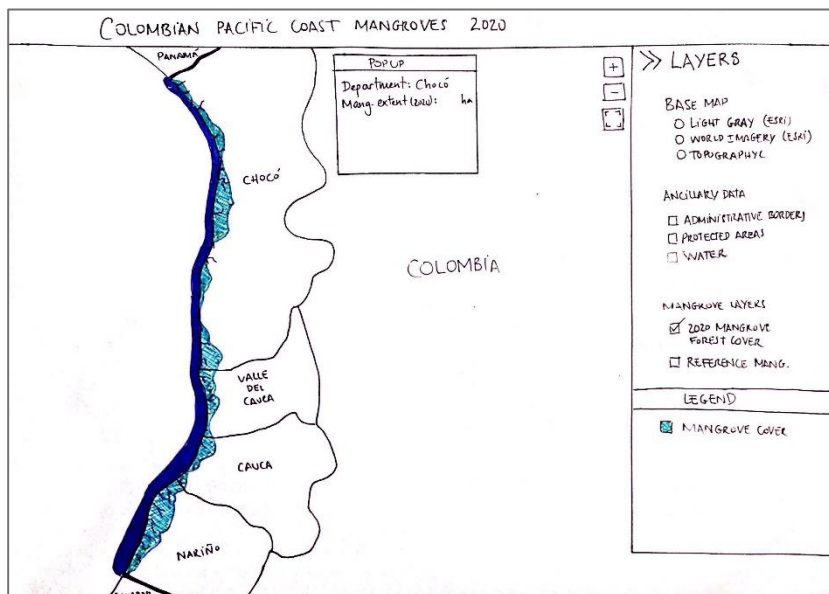 COLOMBIAN PACIFIC COAST MANGROVES 2020
PANAMÁ
CHOCÓ
VALLE
DEL
CAUCA
CAUCA
NARIÑO
COLOMBIA
POPUP
Department: Chocó
Mang. extent (2020): ha
+
-
>> LAYERS
BASE MAP
LIGHT GRAY (ESRI)
WORLD IMAGERY (ESRI)
TOPOGRAPHYC
ANCILLARY DATA
ADMINISTRATIVE BORDERS
PROTECTED AREAS
WATER
MANGROVE LAYERS
2020 MANGROVE
FOREST COVER
REFERENCE MANG.
LEGEND
MANGROVE COVER